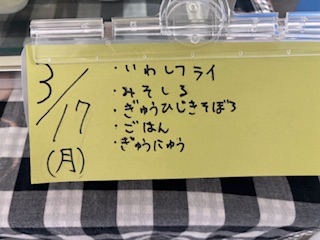 3/17
(月)
・いわしフライ
・みそしる
・ぎゅうひじきそぼろ
・ごはん
・ぎゅうにゅう